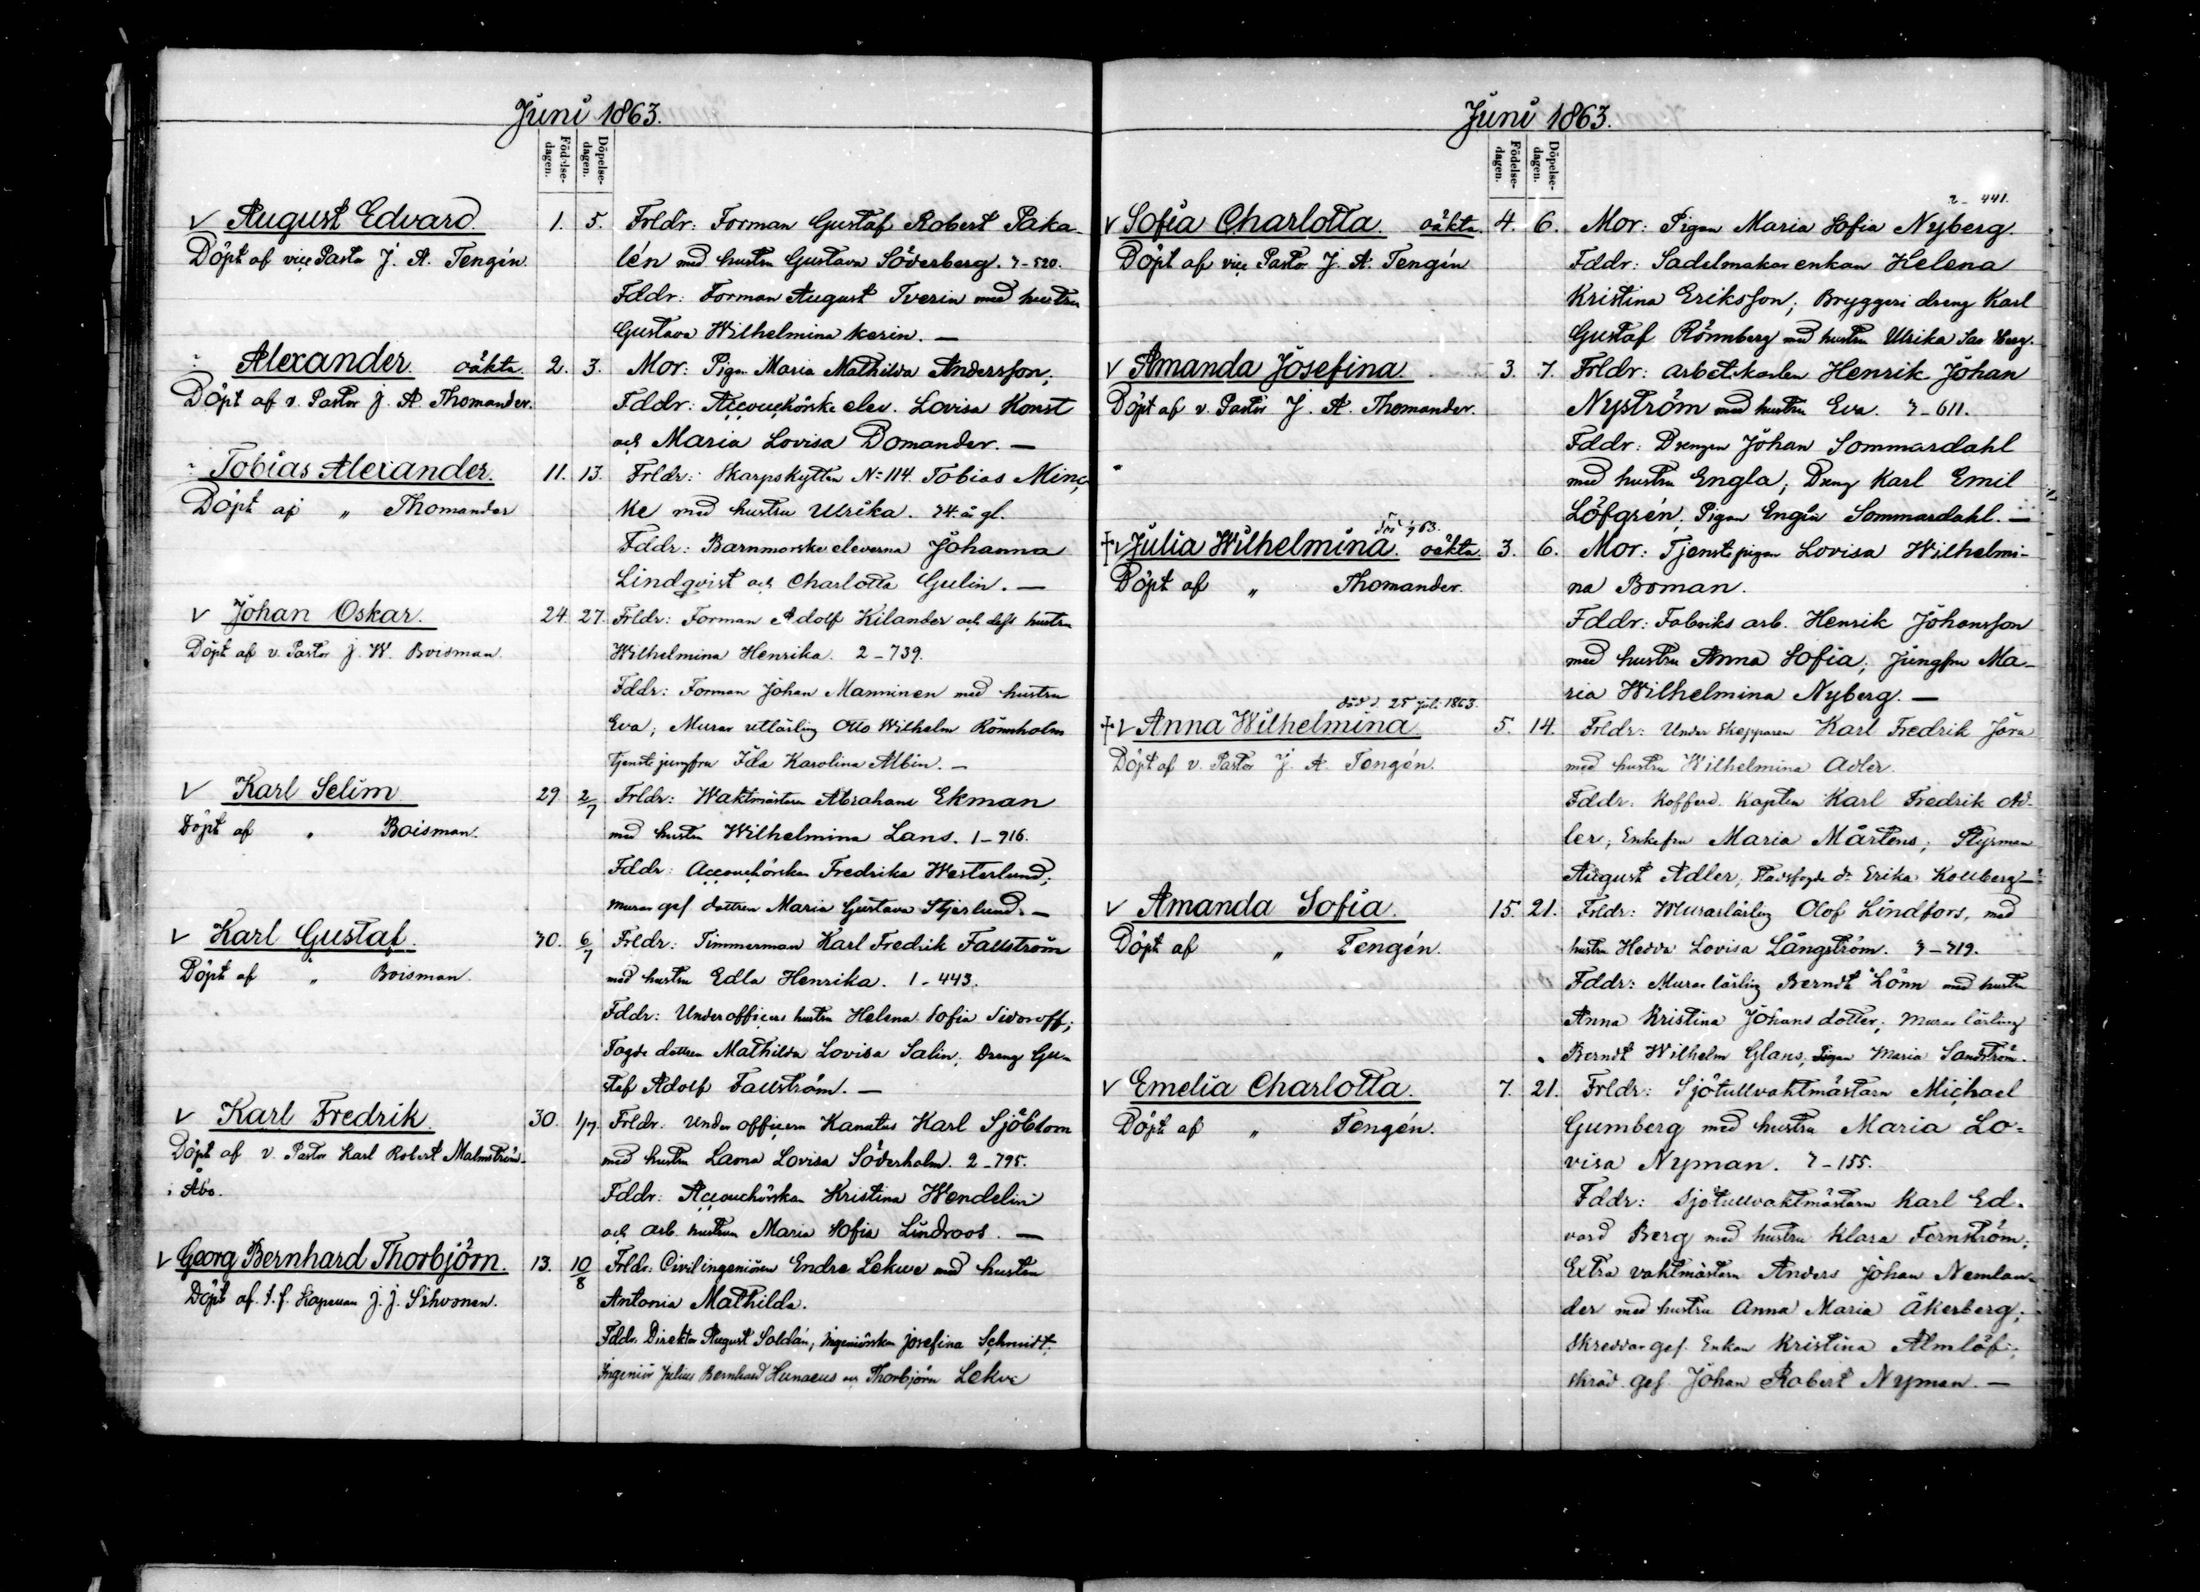 Juni 1863.
Födelse-dagen.
Döpelse-dagen.
August Edvard. 1. 5. Frldr: Forman Gustaf Robert Paka-
Döpt af vice Pastor J. A. Tengén. lén med hustru Gustava Söderberg. 3-520.
Fddr: Forman August Tverin med hustru
Gustava Wilhelmina Kerin. —
Alexander. oäkta. 2. 3. Mor: Pigan Maria Mathilda Andersson;
Döpt af v. Pastor J. A. Thomander. Fddr: Accouchörske elev. Lovisa Konst
och Maria Lovisa Domander. —
Tobias Alexander. 11. 13. Frldr: Skarpskytten No 114. Tobias Minc-
Döpt af „ Thomander ke med hustru Ulrika. 24. å gl.
Fddr: Barnmorske eleverna Johanna
Lindqvist och Charlotta Gulin. —
Johan Oskar. 24. 27. Frldr: Forman Adolf Kilander och dess hustru
Döpt af v. Pastor J. W. Boisman. Wilhelmina Henrika. 2-739.
Fddr: Forman Johan Manninen med hustru
Eva; Murar utlärling Otto Wilhelm Rönnholm
Tjenste jungfru Ida Karolina Albin. —
Karl Selim 29 2/7 Frldr: Waktmästaren Abraham Ekman
Döpt af „ Boisman. med hustru Wilhelmina Lans. 1-916.
Fddr: Accouchörskan Fredrika Westerlund;
Murar gef. dottren Maria Gustava Stjerlund. —
Karl Gustaf. 30. 6/7 Frldr: Timmerman Karl Fredrik Fallström
Döpt af „ Boisman. med hustru Edla Henrika. 1-443.
Fddr: Underofficers hustru Helena Sofia Sidoroff;
Fogde dottren Mathilda Lovisa Salin; Dreng Gu-
staf Adolf Fallström. —
Karl Fredrik 30. 1/7. Frldr: Under officern Kanutus Karl Sjöblom
Döpt af v. Pastor Karl Robert Malmström med hustru Laona Lovisa Söderholm. 2-795.
i Åbo. Fddr: Accouchörskan Kristina Wendelin
och arb. hustrun Maria Sofia Lindroos. —
Georg Bernhard Thorbjörn. 13. 10/8 Frldr: Civilingeniören Endre Lekve med hustru
Döpt af t.f. Kapellan J. J. Sihvonen. Antonia Mathilda.
Fddr. Direktor August Soldán, Ingeniörskan Josefina Schmidt,
Ingeniör Julius Bernhard Hunaeus och Thorbjörn Lekve
Juni 1863.
Födelse-dagen.
Döpelse-dagen.
2-441.
Sofia Charlotta. oäkta. 4. 6. Mor: Pigan Maria Sofia Nyberg.
Döpt af vice Pastor J. A. Tengén Fddr: Sadelmakar enkan Helena
Kristina Eriksson; Bryggeri dreng Karl
Gustaf Rönnberg med hustru Ulrika
Amanda Josefina. 3. 7. Frldr: Arbetskarlen Henrik Johan
Döpt af v. Pastor J. A. Thomander. Nyström med hustru Eva. 3-611.
Fddr: Drengen Johan Sommardahl
med hustru Engla; Dreng Karl Emil
Löfgrén; Pigan Engla Sommardahl. —
Julia Wilhelmina. oäkta. 3. 6. Mor: Tjenste pigan Lovisa Wilhelmi-
Döpt af „ Thomander. na Boman.
Fddr: Fabriks arb. Henrik Johansson
med hustru Anna Sofia; Jungfru Ma-
ria Wilhelmina Nyberg. —
död d. 25 Juli 1863.
Anna Wilhelmina 5. 14. Frldr: Under Skepparen Karl Fredrik Jöra
Döpt af v. Pastor J. A. Tengén. med hustru Wilhelmina Adler.
Fddr: Kofferd. Kapten Karl Fredrik Ad-
ler; Enkefru Maria Mårtens; Styrman
August Adler, Stadsfogde d:r Erika Kollberg —
Amanda Sofia. 15. 21. Frldr: Murarlärling Olof Lindfors, med
Döpt af „ Tengén. hustru Hedda Lovisa Långström. 3-319.
Fddr: Murar lärling Berndt Lönn med hustru
Anna Kristina Johans dotter; Murar lärling
Berndt Wilhelm Glans, Pigan Maria Sandström.
Emelia Charlotta. 7. 21. Frldr: Sjötullvaktmästarn Michael
Döpt af „ Tengén. Gumberg med hustru Maria Lo-
visa Nyman. 3-155.
Fddr: Sjötullvaktmästarn Karl Ed-
vard Berg med hustru Klara Fernström;
Extra vaktmästarn Anders Johan Nemlan-
der med hustru Anna Maria Åkerberg;
Skreddar gef. Enkan Kristina Almlöf;
Skräd. gef. Johan Robert Nyman. —